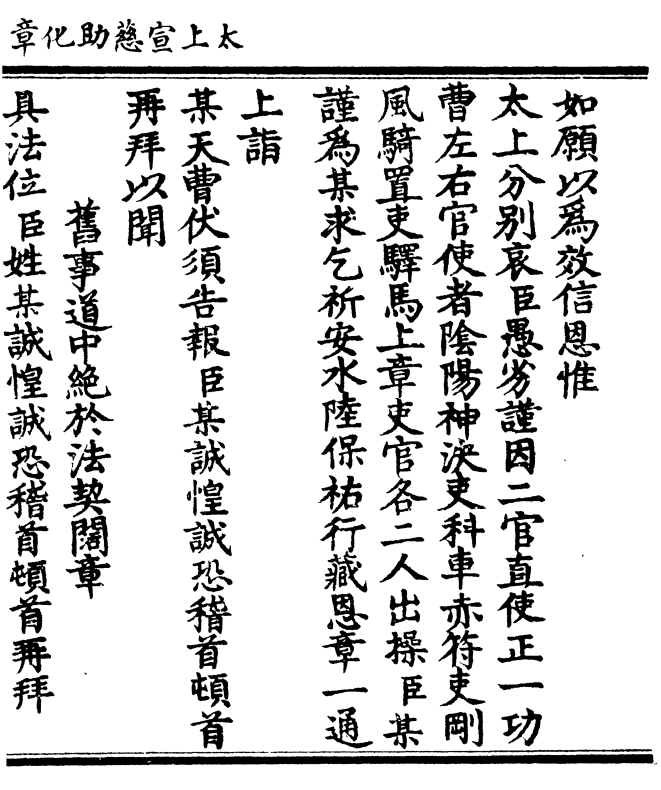 太上宣慈助化章
如願以爲效信恩惟
太上分别哀臣愚劣謹因二官直使正一功
曹左右官使者陰陽神決吏科車赤符吏剛
風騎置吏驛馬上章吏官各二人出操臣某
謹爲某求乞祈安水陸保祐行藏恩章一通
上詣
某天曹伏須告報臣某誠惶誠恐稽首頓首
再拜以聞
舊事道中絶於法契闊章
具法位臣姓某誠惶誠恐稽首頓首再拜